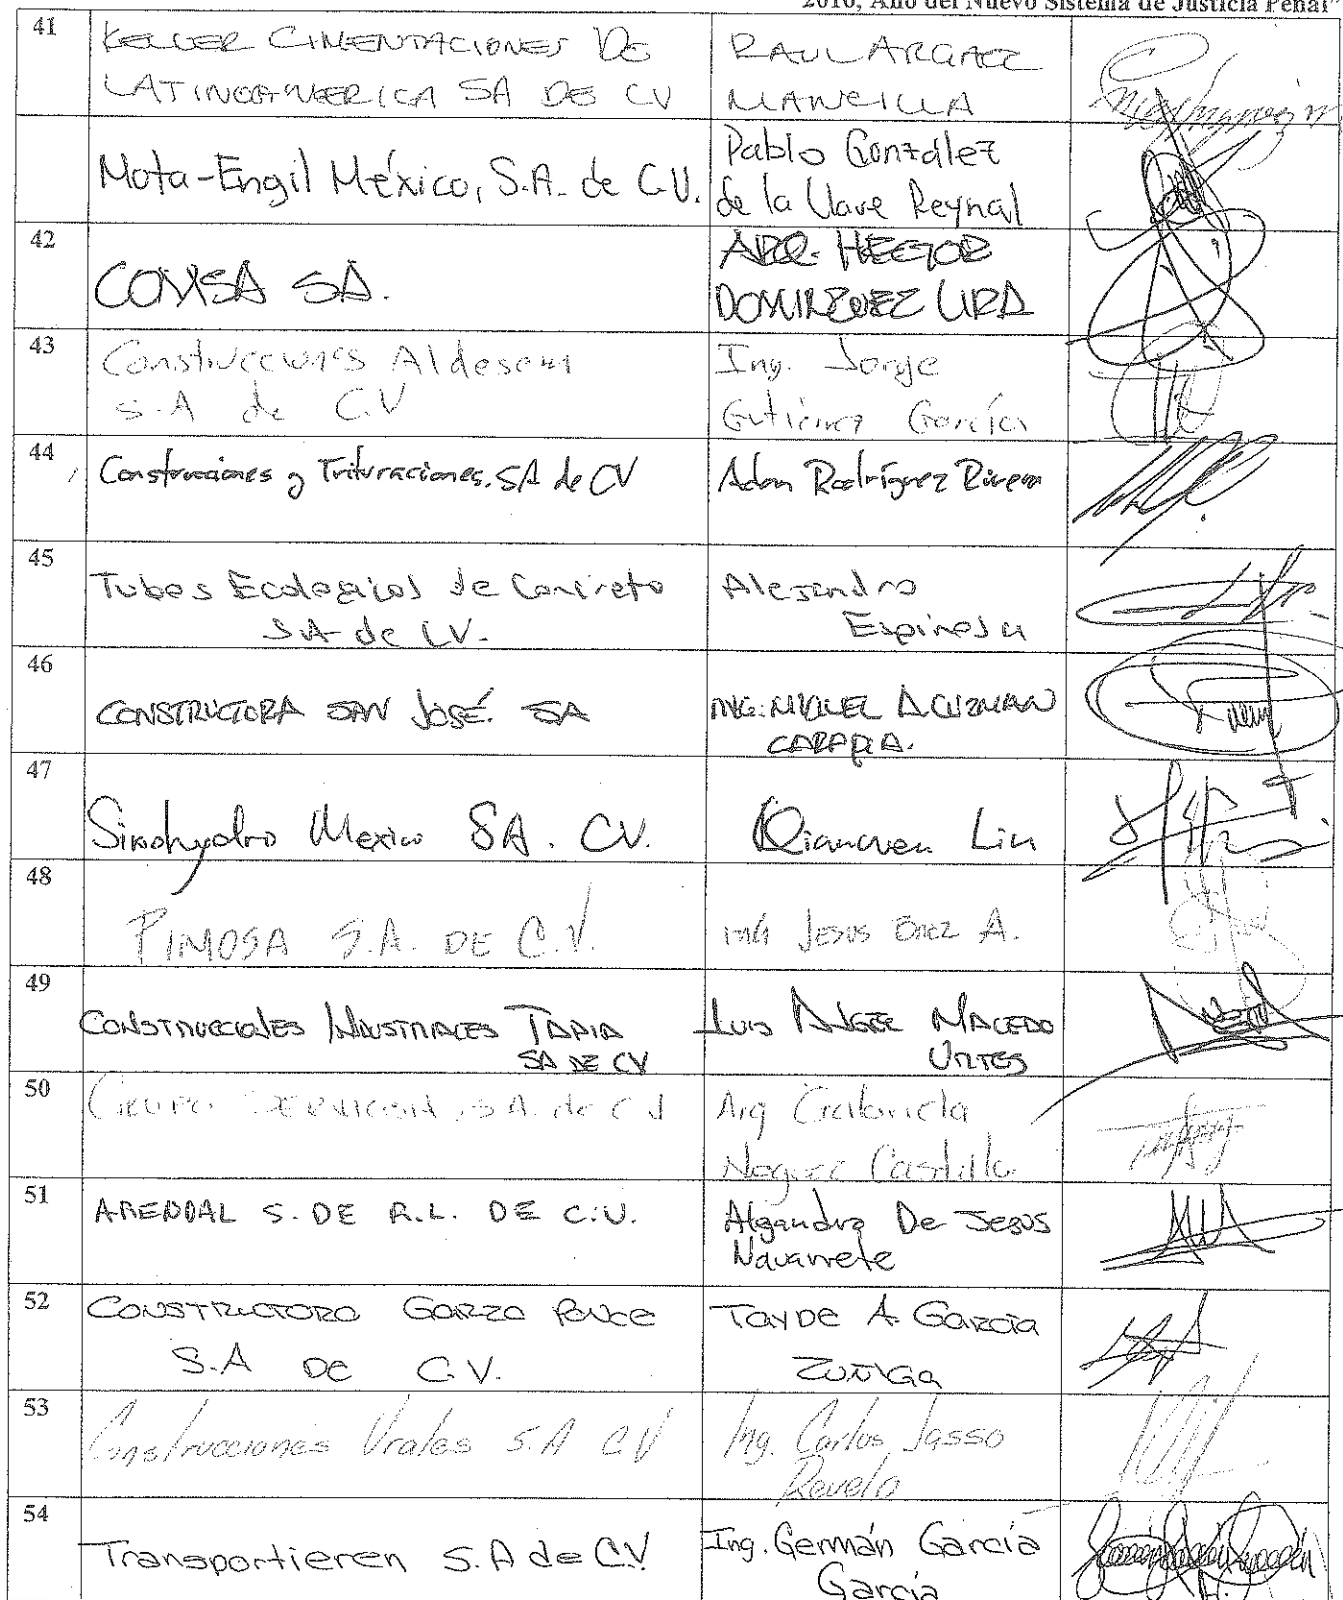 2016, Año del Nuevo Sistema de Justicia Penal"
41
KELLER CIMENTACIONES DE
LATINOAMERICA SA DE CV
RAUL ARGAEZ
MANCILLA
Mota-Engil México, S.A. de C.V.
Pablo González
de la Llave Reynal
42
COMSA SA.
ARQ. HECTOR
DOMINGUEZ LIRA
43
Construcciones Aldesem
S.A de C.V
Ing. Jorge
Gutiérrez García
44
Construcciones y Trituraciones, SA de CV
Adan Rodríguez Rivera
45
Tubos Ecologicos de Concreto
SA de CV.
Alejandro
Espinosa
46
CONSTRUCTORA SAN JOSÉ. SA
ING. MIGUEL A GUZMAN
47
Sinohydro Mexico SA. CV.
Lin
48
PIMOSA S.A. DE C.V.
ING JESUS A.
49
CONSTRUCCIONES INDUSTRIALES TAPIA
SA DE CV
LUIS ANGEL MACEDO
50
Grupo S.A. de C.V
Arq Gabriela
Noguez Castillo
51
ARENDAL S. DE R.L. DE C.V.
Alejandra De JESUS
Navarrete
52
CONSTRUCTORA GARZA PONCE
S.A DE C.V.
TAYDE A. GARCIA
ZUÑIGA
53
Construcciones Urales S.A CV
Ing. Carlos Jasso
Revelo
54
Transportieren S.A de C.V.
Ing. Germán García
García